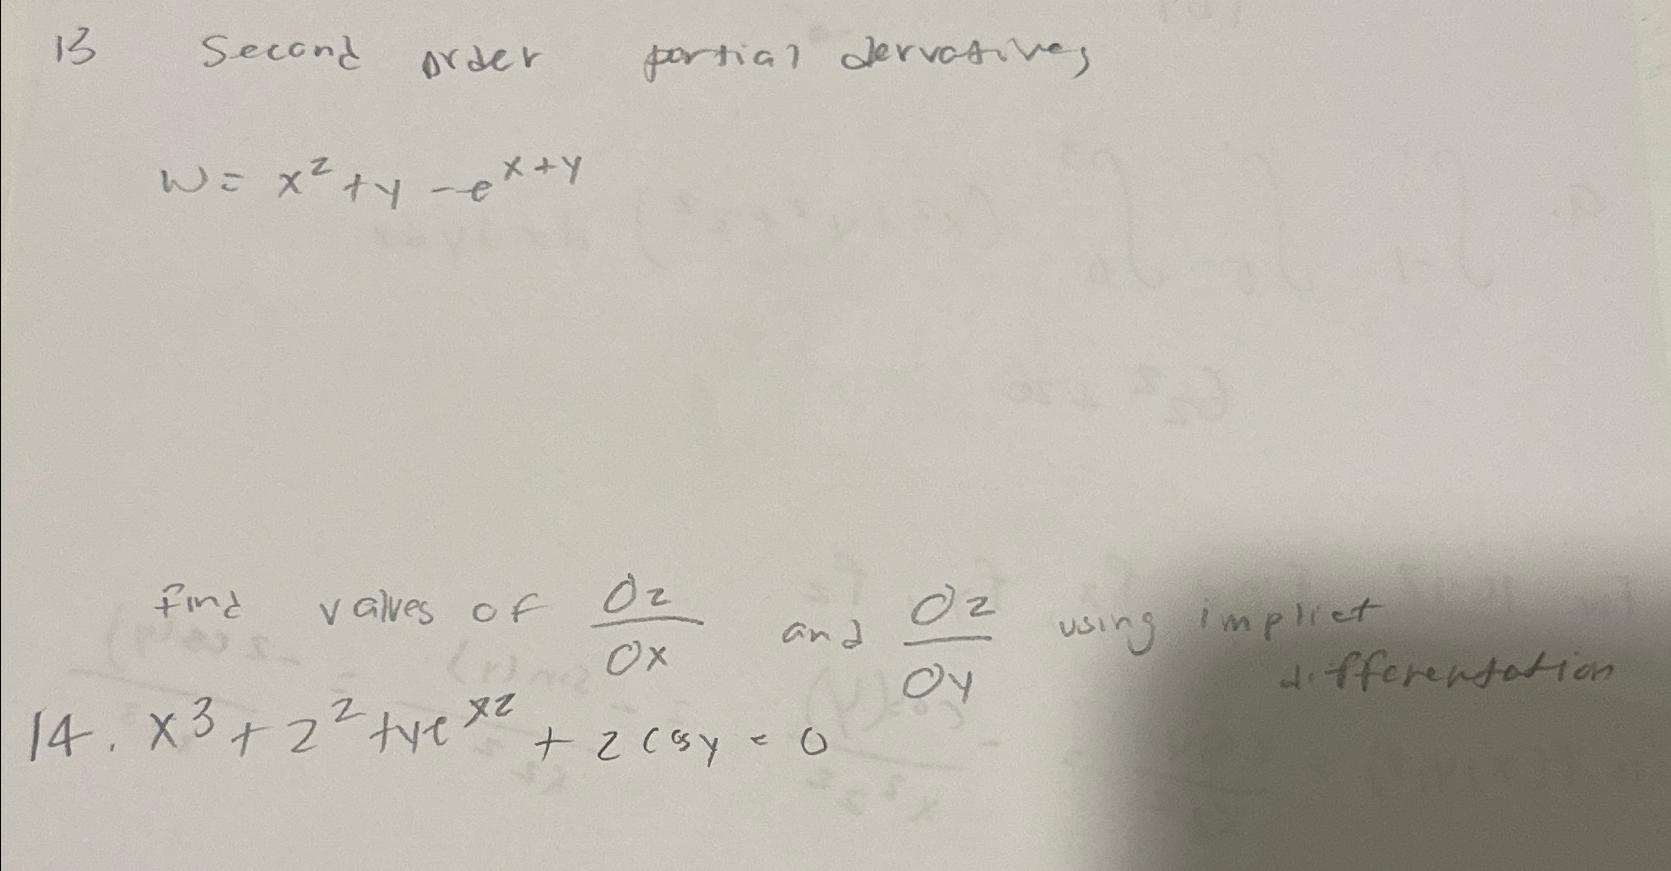 13 Second order partial dervatives
W = x² + y - e^x+y
find values of ∂z/∂x and ∂z/∂y using implict
differentation
14. x³ + z² + ye^xz + z cos y = 0